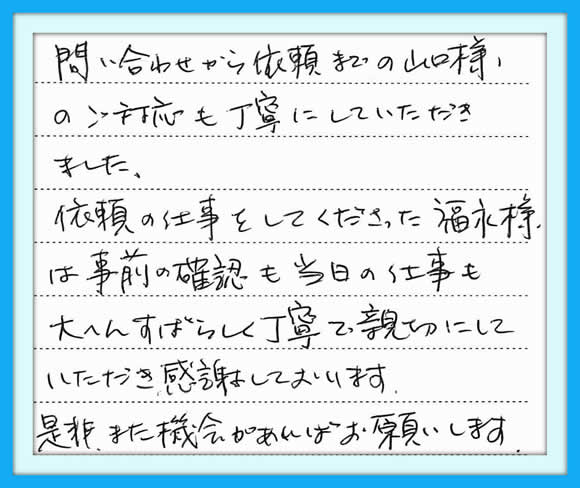 問い合わせから依頼までの山口様、
のご対応も丁寧にしていただき
ました、
依頼の仕事をしてくださった福永様、
は事前の確認も当日の仕事も
大へんすばらしく丁寧で親切にして
いただき感謝しております.
是非、また機会があればお願いします.